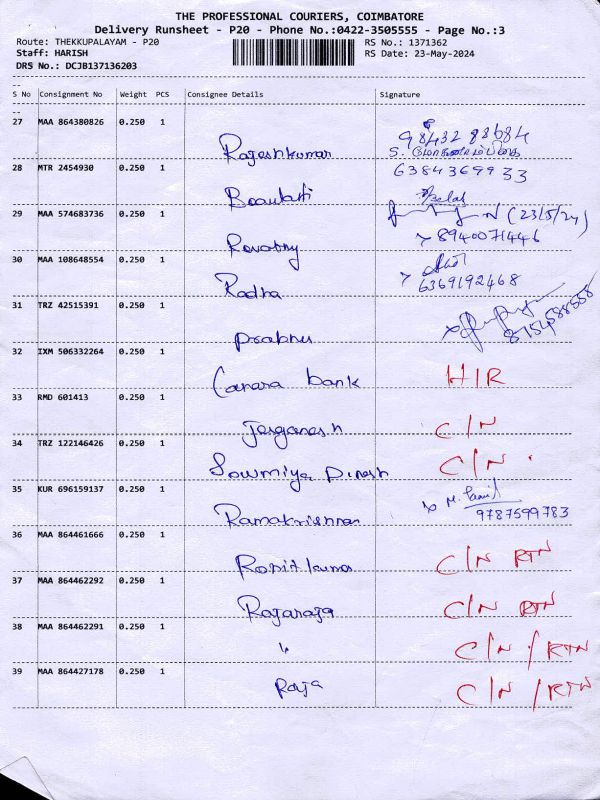 THE PROFESSIONAL COURIERS, COIMBATORE
Delivery Runsheet - P20 - Phone No.:0422-3505555 - Page No.:3
Route: THEKKUPALAYAM - P20
RS No.: 1371362
Staff: HARISH
RS Date: 23-May-2024
DRS No.: DCJB137136203
S No Consignment No Weight PCS Consignee Details Signature
27 MAA 864380826 0.250 1 Rajeshkumar 98432 83684
28 MTR 2454930 0.250 1 6384369933
29 MAA 574683736 0.250 1 (23/5/24)
8940071446
30 MAA 108648554 0.250 1 Radha 6369192468
31 TRZ 42515391 0.250 1 Prabhu 8754588558
32 IXM 506332264 0.250 1 Canara bank H/R
33 RMD 601413 0.250 1 C/N
34 TRZ 122146426 0.250 1 Sowmiya Dinesh C/N
35 KUR 696159137 0.250 1 Ramakrishnan 9787599783
36 MAA 864461666 0.250 1 C/N RTN
37 MAA 864462292 0.250 1 Rajaraja C/N RTN
38 MAA 864462291 0.250 1 " C/N / RTN
39 MAA 864427178 0.250 1 Raja C/N / RTN